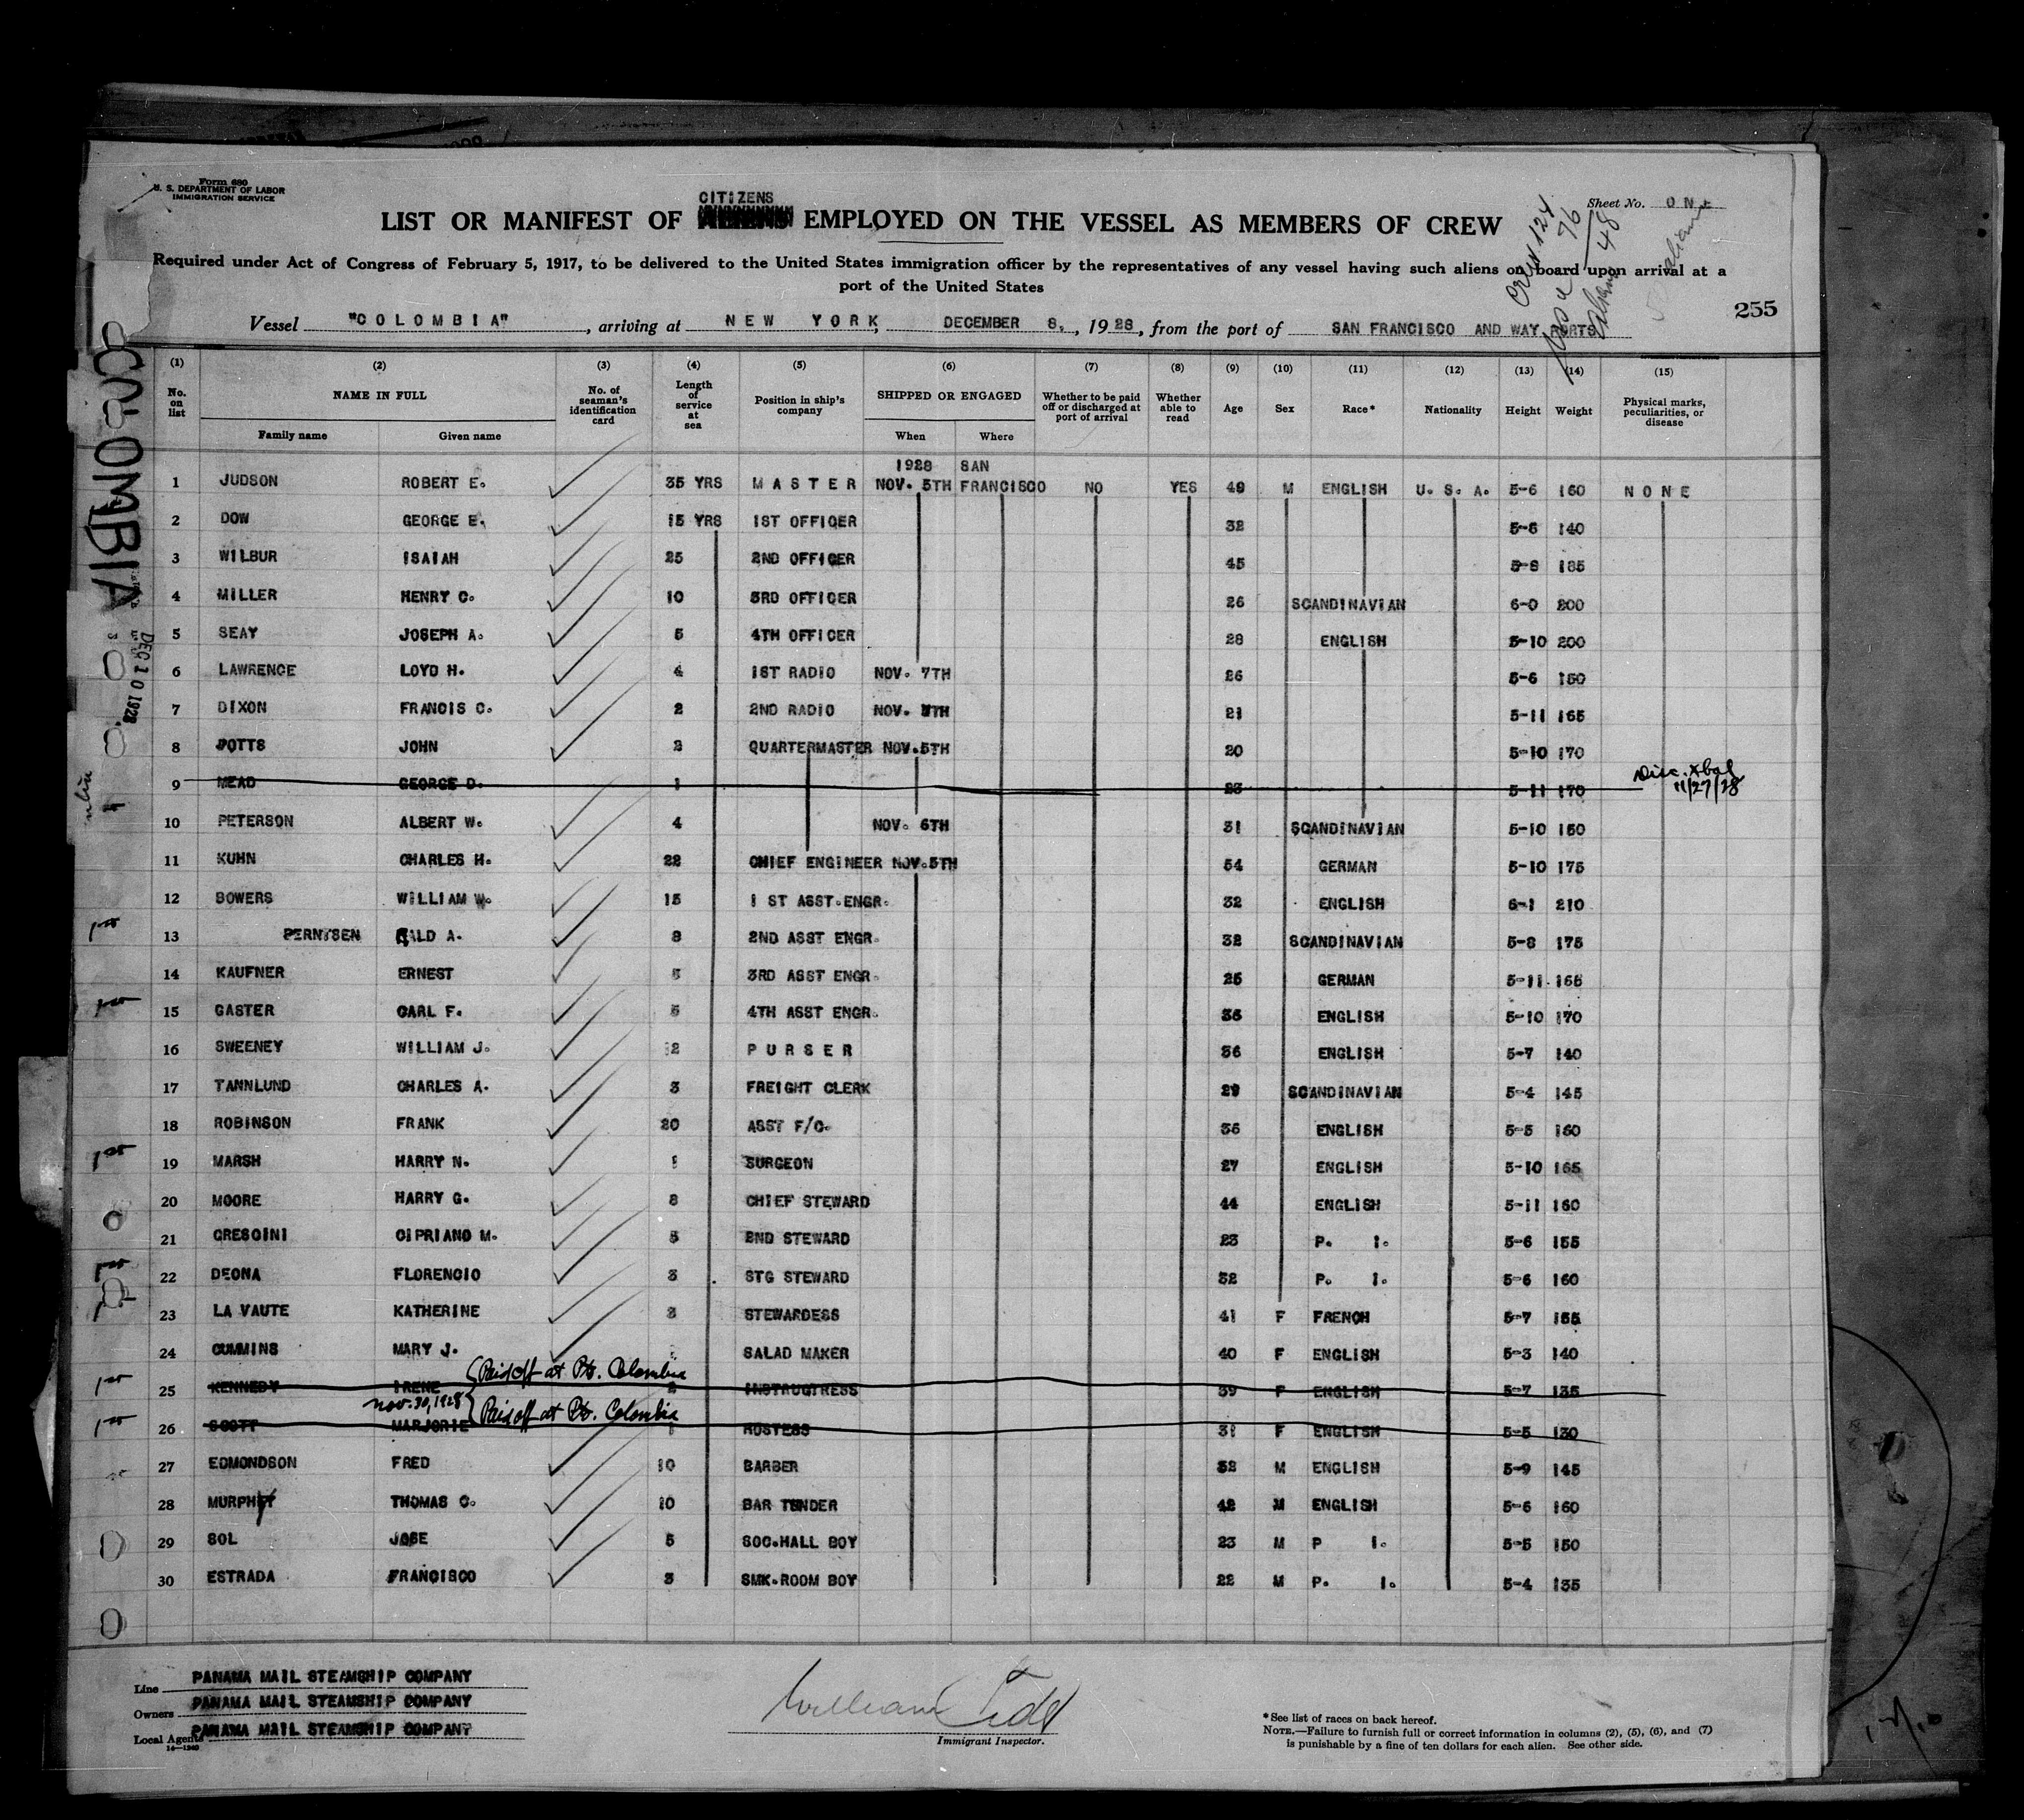 Form 680
U. S. DEPARTMENT OF LABOR
IMMIGRATION SERVICE
Sheet No. ONE
CITIZENS
LIST OR MANIFEST OF ALIENS EMPLOYED ON THE VESSEL AS MEMBERS OF CREW
Required under Act of Congress of February 5, 1917, to be delivered to the United States immigration officer by the representatives of any vessel having such aliens on board upon arrival at a
port of the United States
Crew 124
76
48
255
Vessel "COLOMBIA", arriving at NEW YORK, DECEMBER 8, 1928, from the port of SAN FRANCISCO AND WAY PORTS
(1) (2) (3) (4) (5) (6) (7) (8) (9) (10) (11) (12) (13) (14) (15)
No. on list NAME IN FULL No. of seaman's identification card Length of service at sea Position in ship's company SHIPPED OR ENGAGED Whether to be paid off or discharged at port of arrival Whether able to read Age Sex Race* Nationality Height Weight Physical marks, peculiarities, or disease
Family name Given name When Where
1928 SAN
1 JUDSON ROBERT E. 35 YRS MASTER NOV. 5TH FRANCISCO NO YES 49 M ENGLISH U. S. A. 5-6 160 NONE
2 DOW GEORGE E. 15 YRS 1ST OFFICER 32 5-6 140
3 WILBUR ISAIAH 25 2ND OFFICER 45 5-8 185
4 MILLER HENRY C. 10 3RD OFFICER 26 SCANDINAVIAN 6-0 200
5 SEAY JOSEPH A. 5 4TH OFFICER 28 ENGLISH 5-10 200
6 LAWRENCE LOYD H. 4 1ST RADIO NOV. 7TH 26 5-6 150
7 DIXON FRANCIS C. 2 2ND RADIO NOV. 5TH 21 5-11 165
8 POTTS JOHN 2 QUARTERMASTER NOV.5TH 20 5-10 170
9 MEAD GEORGE D. 1 23 5-11 170 Disc. Xbal 11/27/28
10 PETERSON ALBERT W. 4 NOV. 6TH 31 SCANDINAVIAN 5-10 150
11 KUHN CHARLES H. 22 CHIEF ENGINEER NOV.5TH 54 GERMAN 5-10 175
12 BOWERS WILLIAM W. 15 1 ST ASST.ENGR. 32 ENGLISH 6-1 210
13 BERNTSEN RALD A. 8 2ND ASST ENGR. 32 SCANDINAVIAN 5-8 175
14 KAUFNER ERNEST 5 3RD ASST ENGR. 25 GERMAN 5-11 165
15 GASTER CARL F. 5 4TH ASST ENGR. 36 ENGLISH 5-10 170
16 SWEENEY WILLIAM J. 12 PURSER 36 ENGLISH 5-7 140
17 TANNLUND CHARLES A. 3 FREIGHT CLERK 29 SCANDINAVIAN 5-4 145
18 ROBINSON FRANK 20 ASST F/C. 35 ENGLISH 5-5 160
19 MARSH HARRY N. 1 SURGEON 27 ENGLISH 5-10 165
20 MOORE HARRY G. 8 CHIEF STEWARD 44 ENGLISH 5-11 160
21 CRESCINI CIPRIANO M. 5 2ND STEWARD 23 P. I. 5-6 155
22 DEONA FLORENCIO 3 STG STEWARD 32 P. I. 5-6 160
23 LA VAUTE KATHERINE 3 STEWARDESS 41 F FRENCH 5-7 155
24 CUMMINS MARY J. SALAD MAKER 40 F ENGLISH 5-3 140
Paid off at Pto. Colombia
25 KENNEDY IRENE 2 INSTRUCTRESS 39 F ENGLISH 5-7 135
Nov. 30, 1928 Paid off at Pto. Colombia
26 SCOTT MARJORIE 1 HOSTESS 31 F ENGLISH 5-5 130
27 EDMONDSON FRED 10 BARBER 32 M ENGLISH 5-9 145
28 MURPHY THOMAS C. 10 BAR TENDER 42 M ENGLISH 5-6 160
29 SOL JOSE 5 SOC.HALL BOY 23 M P I. 5-5 150
30 ESTRADA FRANCISCO 3 SMK.ROOM BOY 22 M P. I. 5-4 135
COLOMBIA
DEC 10 1928
Line PANAMA MAIL STEAMSHIP COMPANY
Owners PANAMA MAIL STEAMSHIP COMPANY
Local Agents PANAMA MAIL STEAMSHIP COMPANY
William
Immigrant Inspector.
*See list of races on back hereof.
NOTE.—Failure to furnish full or correct information in columns (2), (5), (6), and (7)
is punishable by a fine of ten dollars for each alien. See other side.